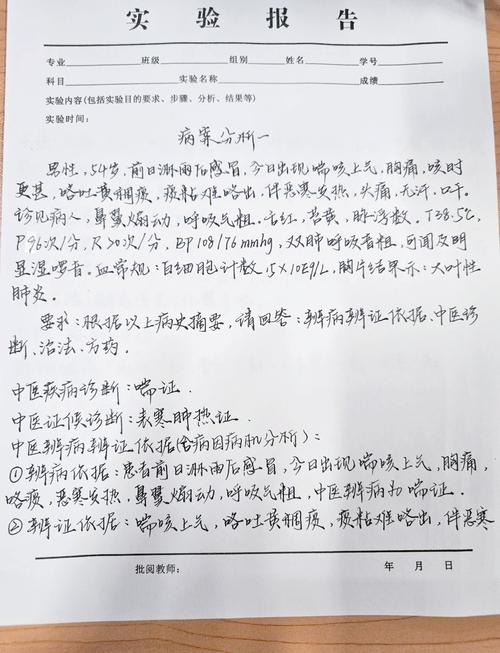 实 验 报 告
专业 班级 组别 姓名 学号
科目 实验名称 成绩
实验内容(包括实验目的要求、步骤、分析、结果等)
实验时间：
病案分析一
男性，54岁，前日淋雨后感冒，今日出现喘咳上气，胸痛，咳时
更甚，咯吐黄稠痰，痰粘难咯出，伴恶寒发热，头痛，无汗，口干。
诊见病人，鼻翼煽动，呼吸气粗，舌红，苔黄，脉浮数。T38.5℃，
P96次/分，R 30次/分，BP108/76mmhg，双肺呼吸音粗，可闻及明
显湿啰音。血常规：白细胞计数，15×10E9/L，胸片结果示：大叶性
肺炎。
要求：根据以上病史摘要，请回答：辨病辨证依据、中医诊
断、治法、方药。
中医疾病诊断：喘证．
中医证候诊断：表寒肺热证．
中医辨病辨证依据(含病因病机分析)：
①辨病依据：患者前日淋雨后感冒，今日出现喘咳上气，胸痛，
咯痰，恶寒发热，鼻翼煽动，呼吸气粗，中医辨病为喘证．
②辨证依据：喘咳上气，咯吐黄稠痰，痰粘难咯出，伴恶寒
批阅教师： 年 月 日